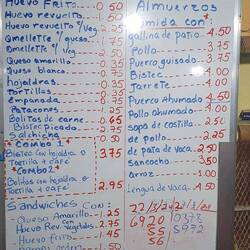 Huevo Frito 0.50
Huevo revuelto 0.50
Huevo revuelto c/Veg. 1.25
Omellette c/queso 1.75
Omellette
Queso amarillo 0.35
Queso blanco 0.75
hojaldres 0.35
Tortillas 0.35
Empanada 0.75
Patacones 0.25
Bolitas de carne 0.65
Bistec picado 2.75
Salchichas 0.50
*Combo 1*
Bistec con hojaldra o
Tortilla y cafe 3.75
*Combo 2*
Bolitas con hojaldra o
Tortilla y cafe 2.95
Sandwiches con:
Queso Amarillo 1.25
con
Huev Rev. vegetales 2.75
con
Huevo frito 1.45
Almuerzos
Comida con:
gallina de patio 4.50
Pollo 3.75
Puerco guisado 3.75
Bistec 4.25
Jarrete 4.25
Puerco Ahumado 4.50
Pollo Ahumado 4.00
sopa de costilla 2.25
de pollo 2.25
de pata de vaca 2.50
Sancocho 3.50
arroz 1.00
Lengua de vaca 4.50
22/3/24
6920
55
56
0378
5972